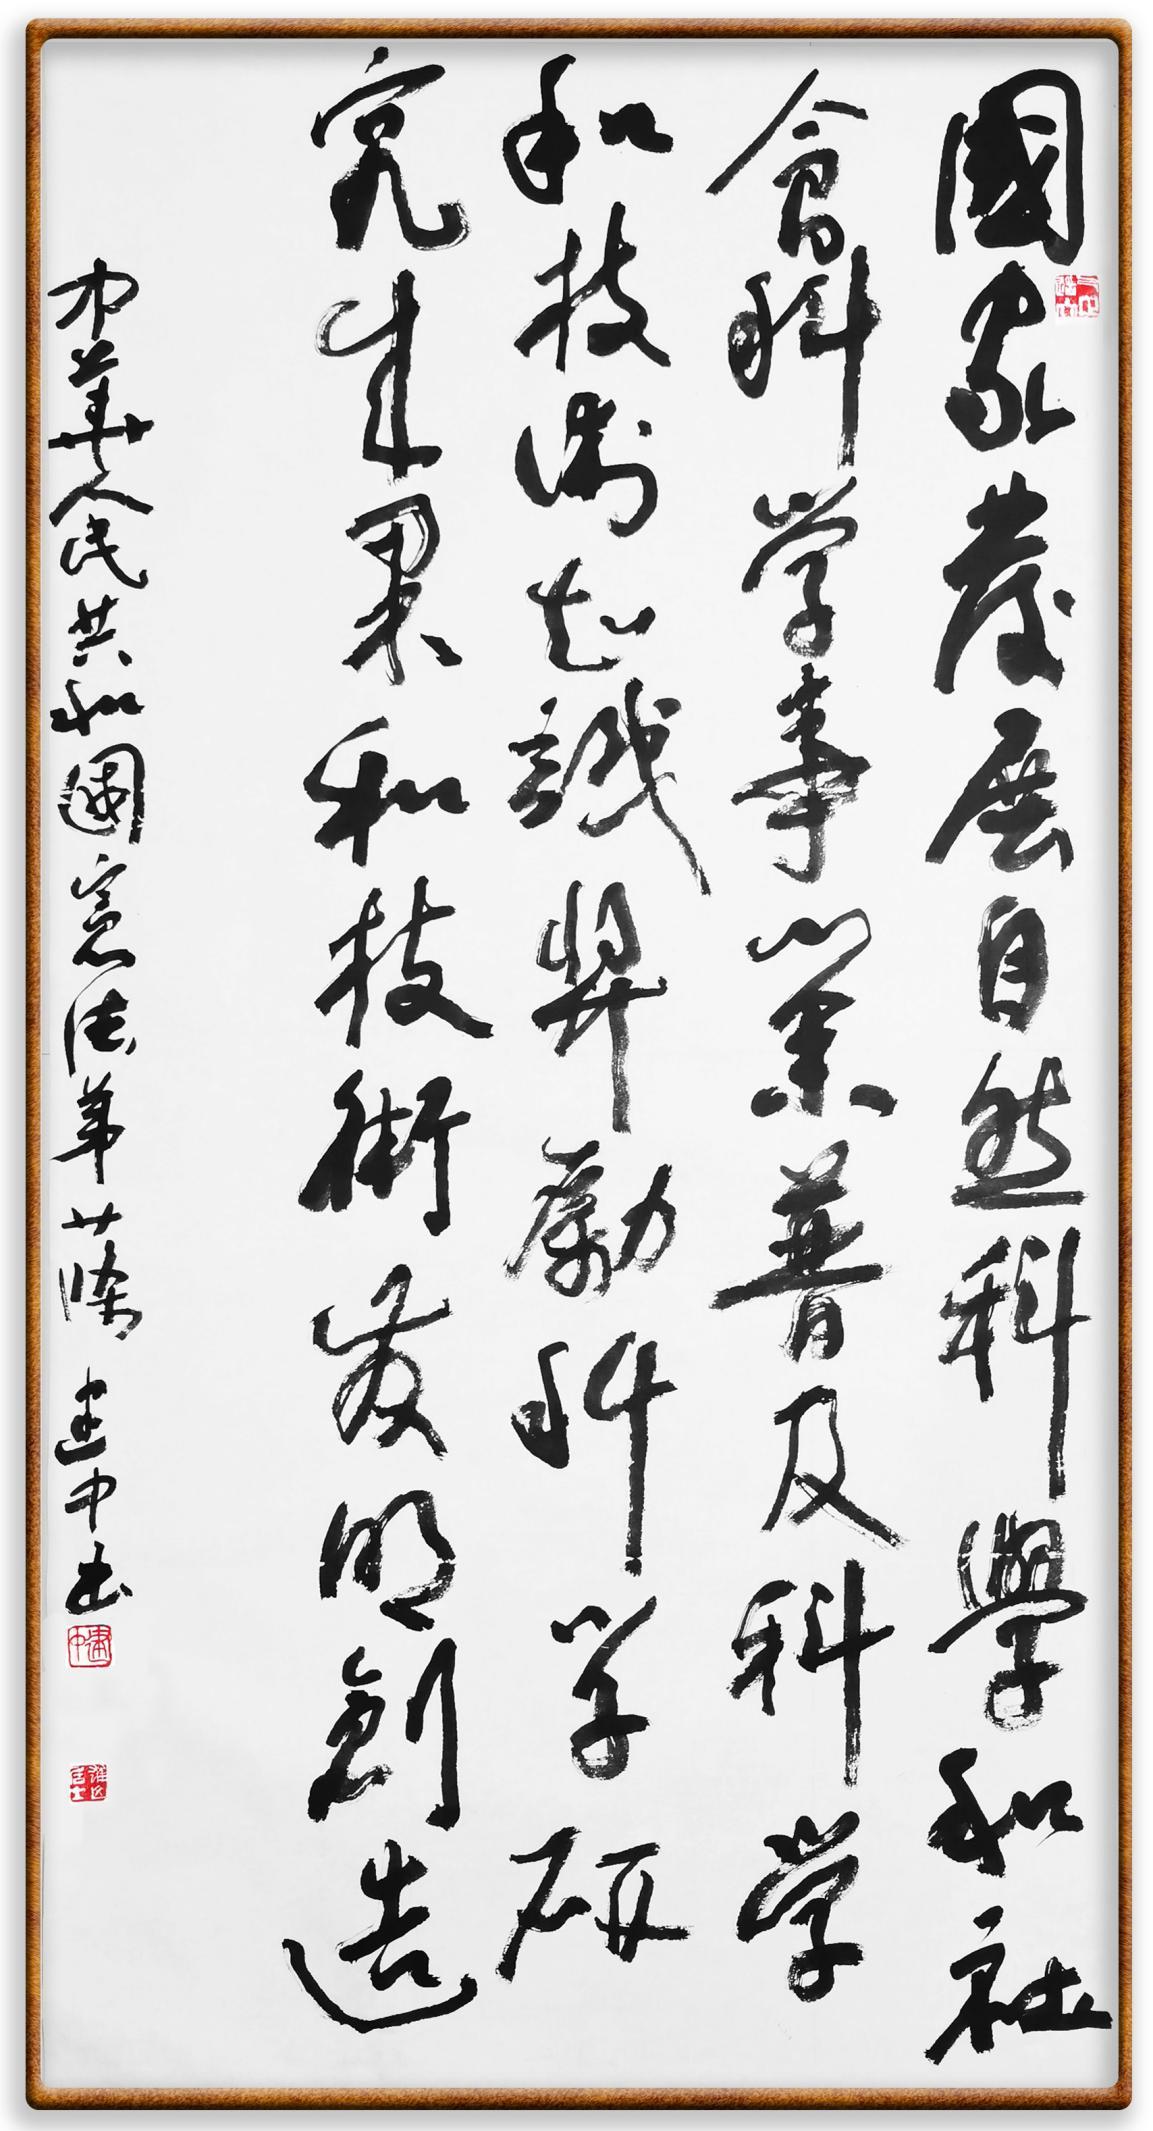 國家發展自然科學和社
會科学事業普及科学
和技術知識奨勵科学研
究成果和技術发明創造
中華人民共和國憲法第廿條 建中书
建中